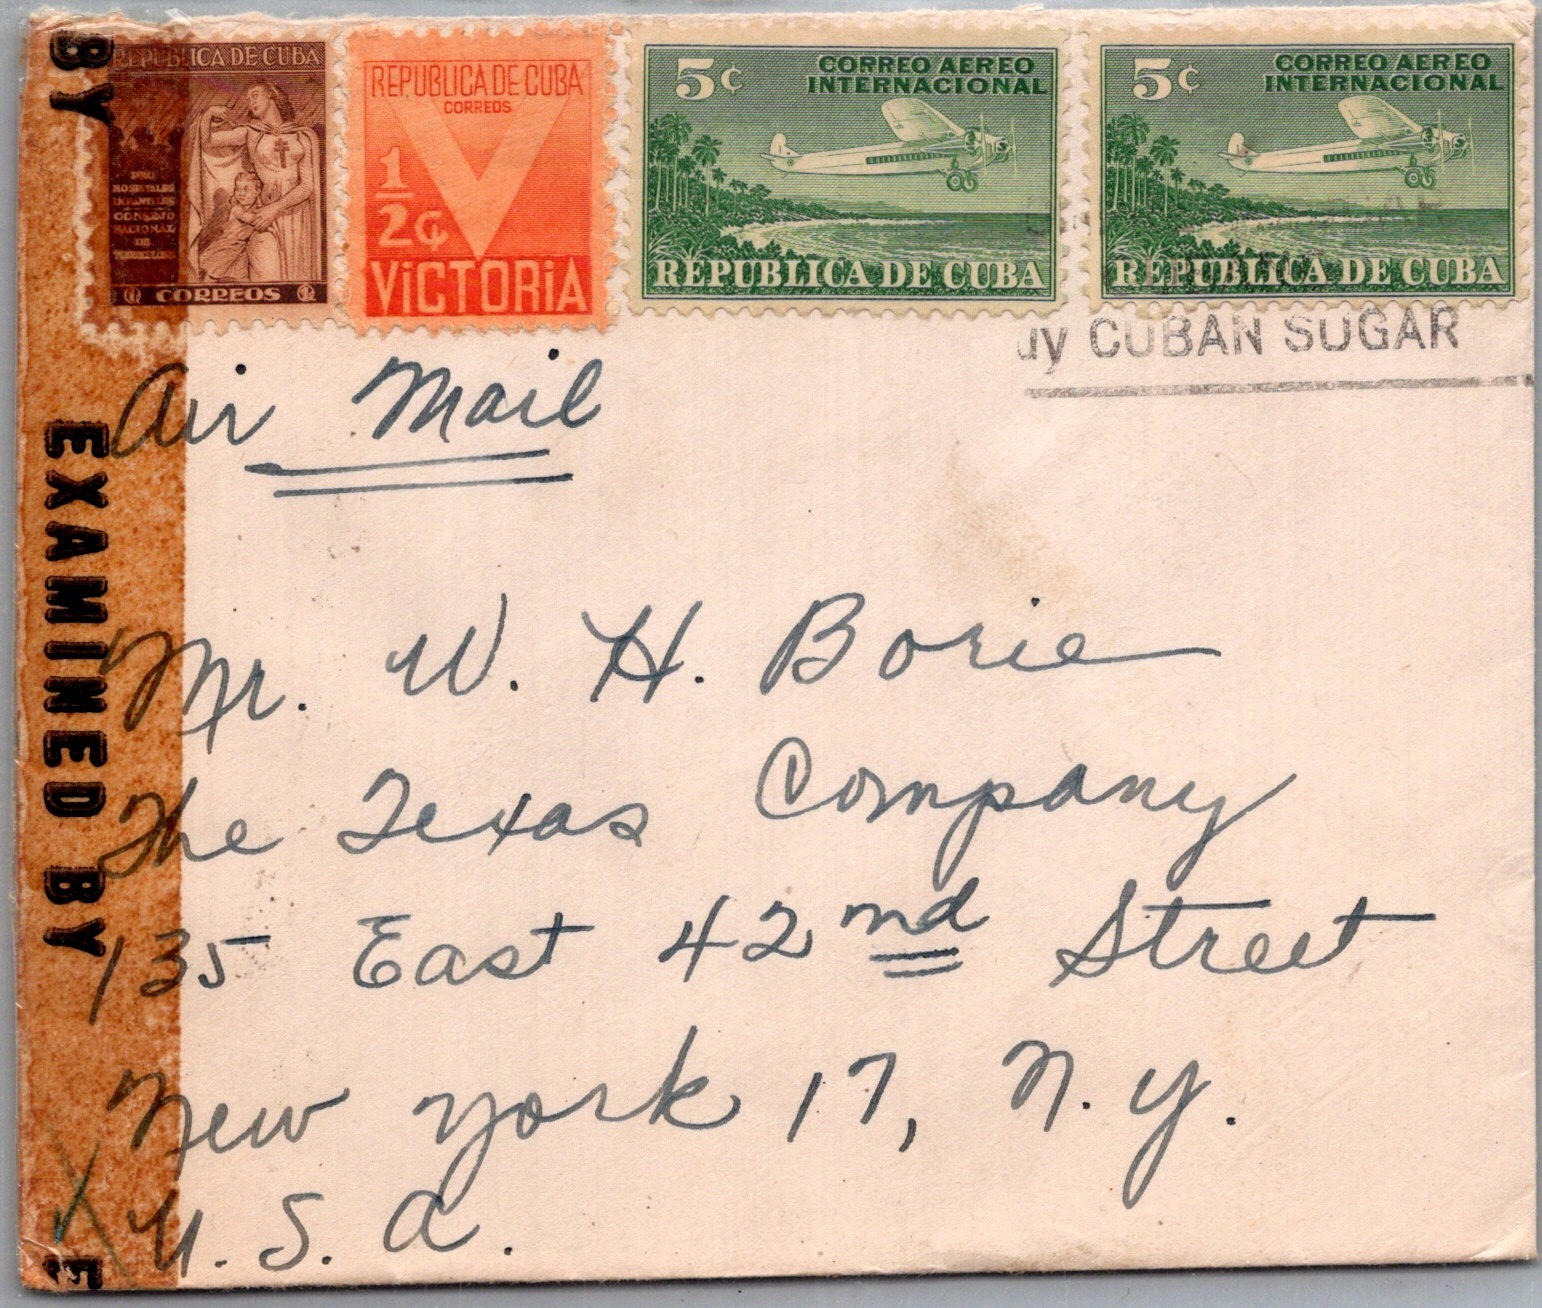 BY
EXAMINED BY
REPUBLICA DE CUBA
PRO
HOSPITALES
INFANTILES
CONSEJO
NACIONAL
DE
TUBERCULOSIS
CORREOS
REPUBLICA DE CUBA
CORREOS
1/2 ¢
VICTORIA
5¢
CORREO AEREO
INTERNACIONAL
REPUBLICA DE CUBA
5¢
CORREO AEREO
INTERNACIONAL
REPUBLICA DE CUBA
uy CUBAN SUGAR
Air Mail
Mr. W. H. Borie
The Texas Company
135 East 42nd Street
New York 17, N.Y.
U.S.A.